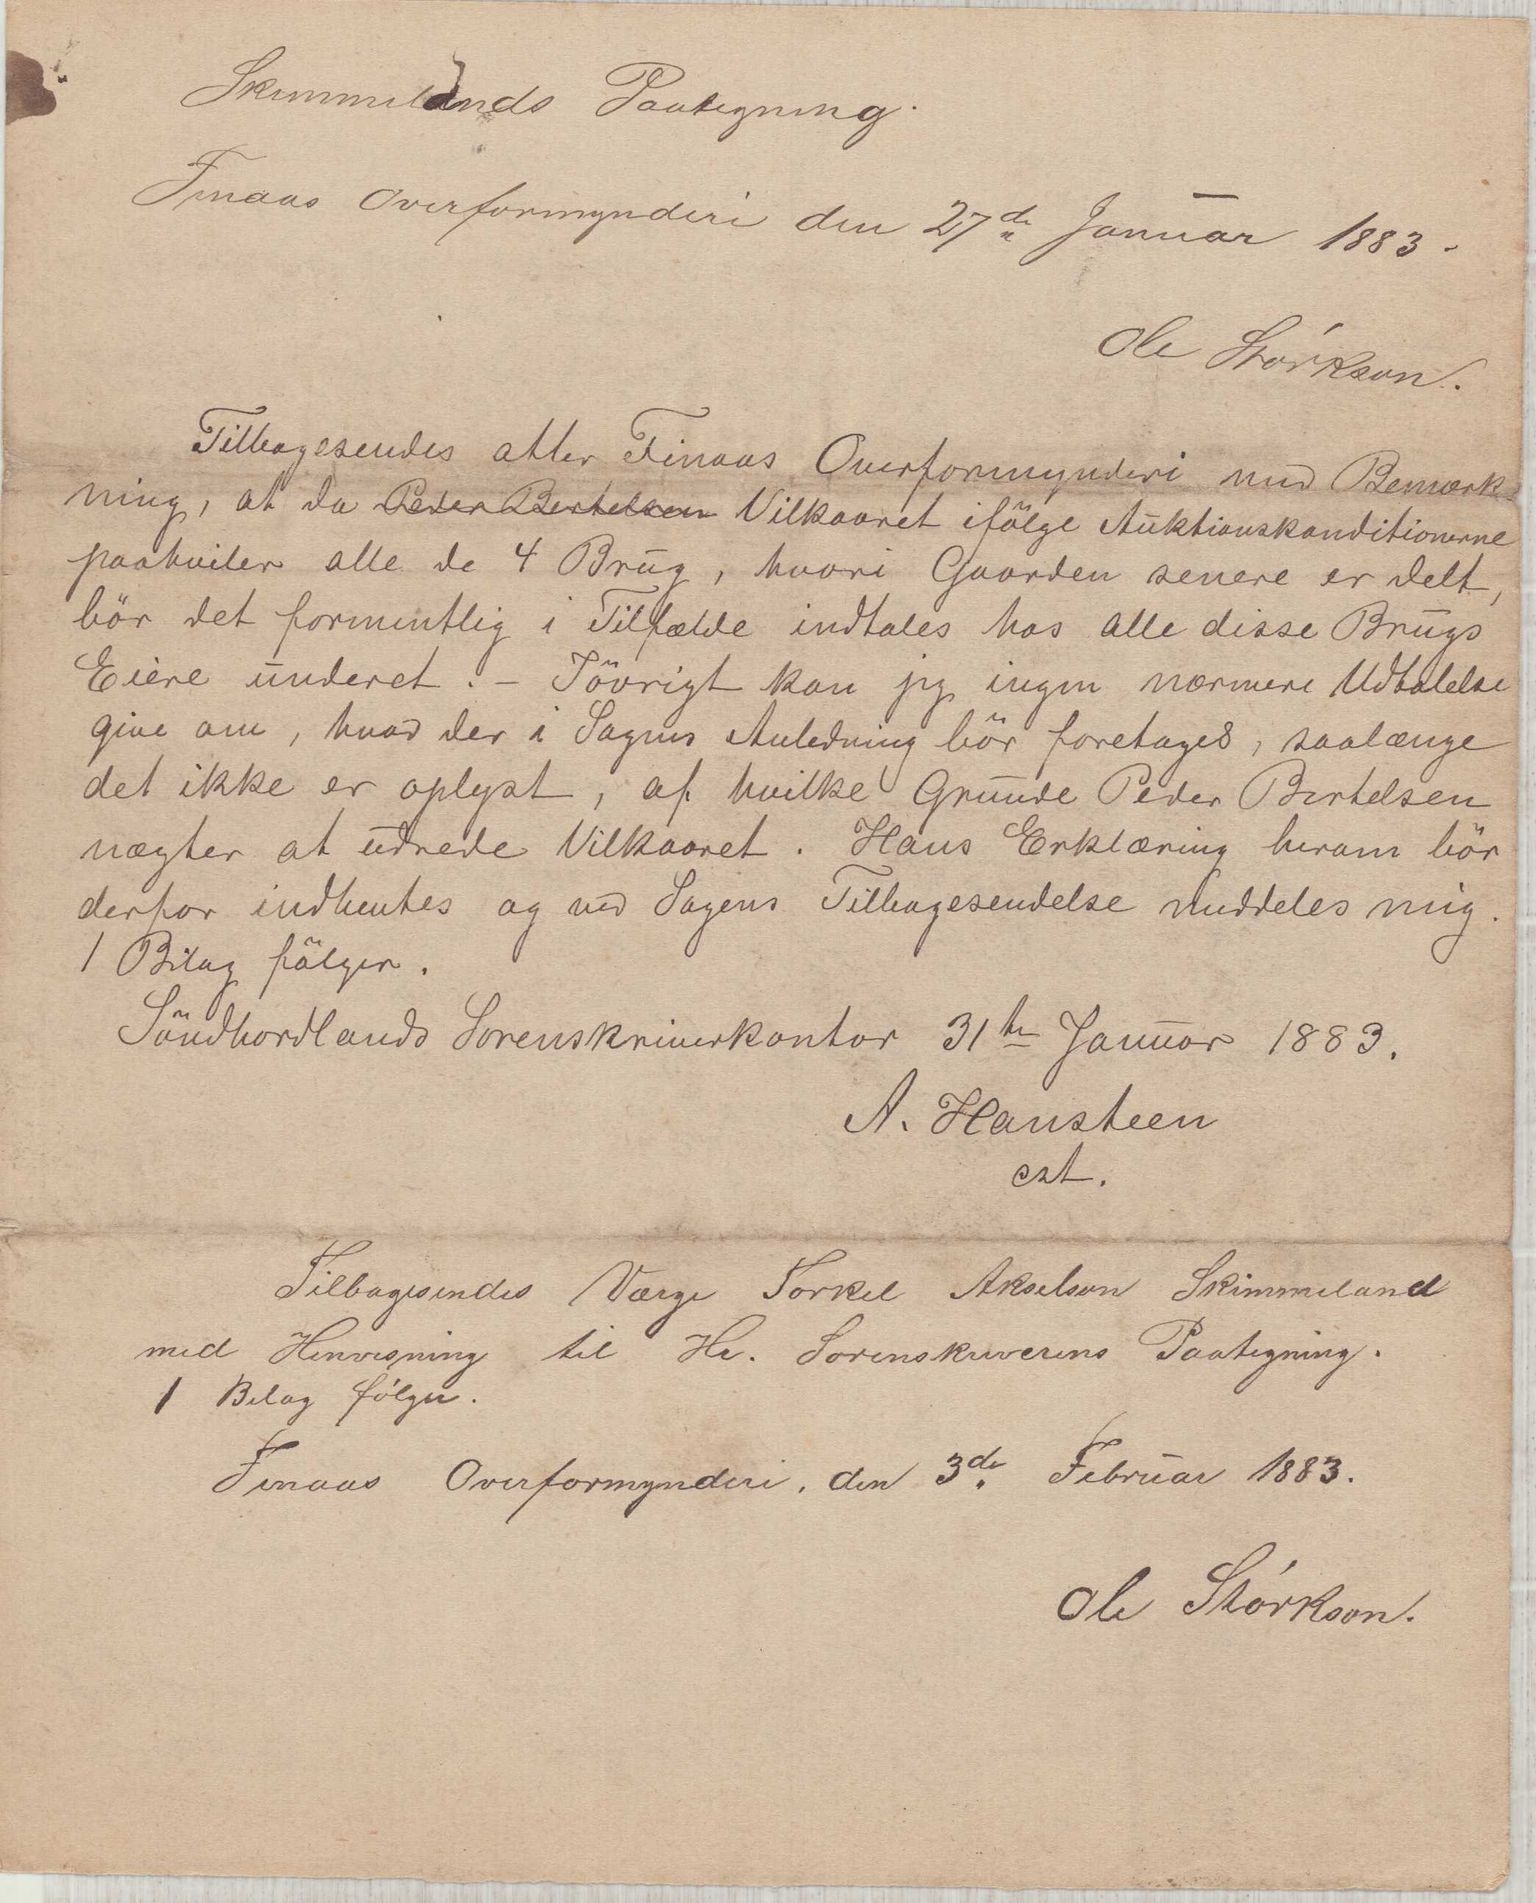 Skimmelands Paategning.
Finaas Overformynderi den 27de Januar 1883.
Ole Störkson.
Tilbagesendes atter Finaas Overformynderi med Bemærk-
ning, at da Peder Bertelsen Vilkaaret ifölge Auktionskonditionerne
paahviler alle de 4 Brug, hvori Gaarden senere er delt,
bör det formentlig i Tilfælde indtales hos alle disse Brugs
Eiere underet. – Iövrigt kan jeg ingen nærmere Udtalelse
give om, hvad der i Sagens Anledning bör foretages, saalænge
det ikke er oplyst, af hvilke Grunde Peder Bertelsen
nægter at udrede Vilkaaret. Hans Erklæring herom bör
derfor indhentes og ved Sagens Tilbagesendelse meddeles mig.
1 Bilag fölger.
Söndhordlands Sorenskriverkontor 31te Januar 1883.
A. Hansteen
cst.
Tilbagesendes Værge Torkel Akselson Skimmeland
med Henvisning til Hr. Sorenskriverens Paategning.
1 Bilag fölger.
Finaas Overformynderi, den 3de Februar 1883.
Ole Störkson.